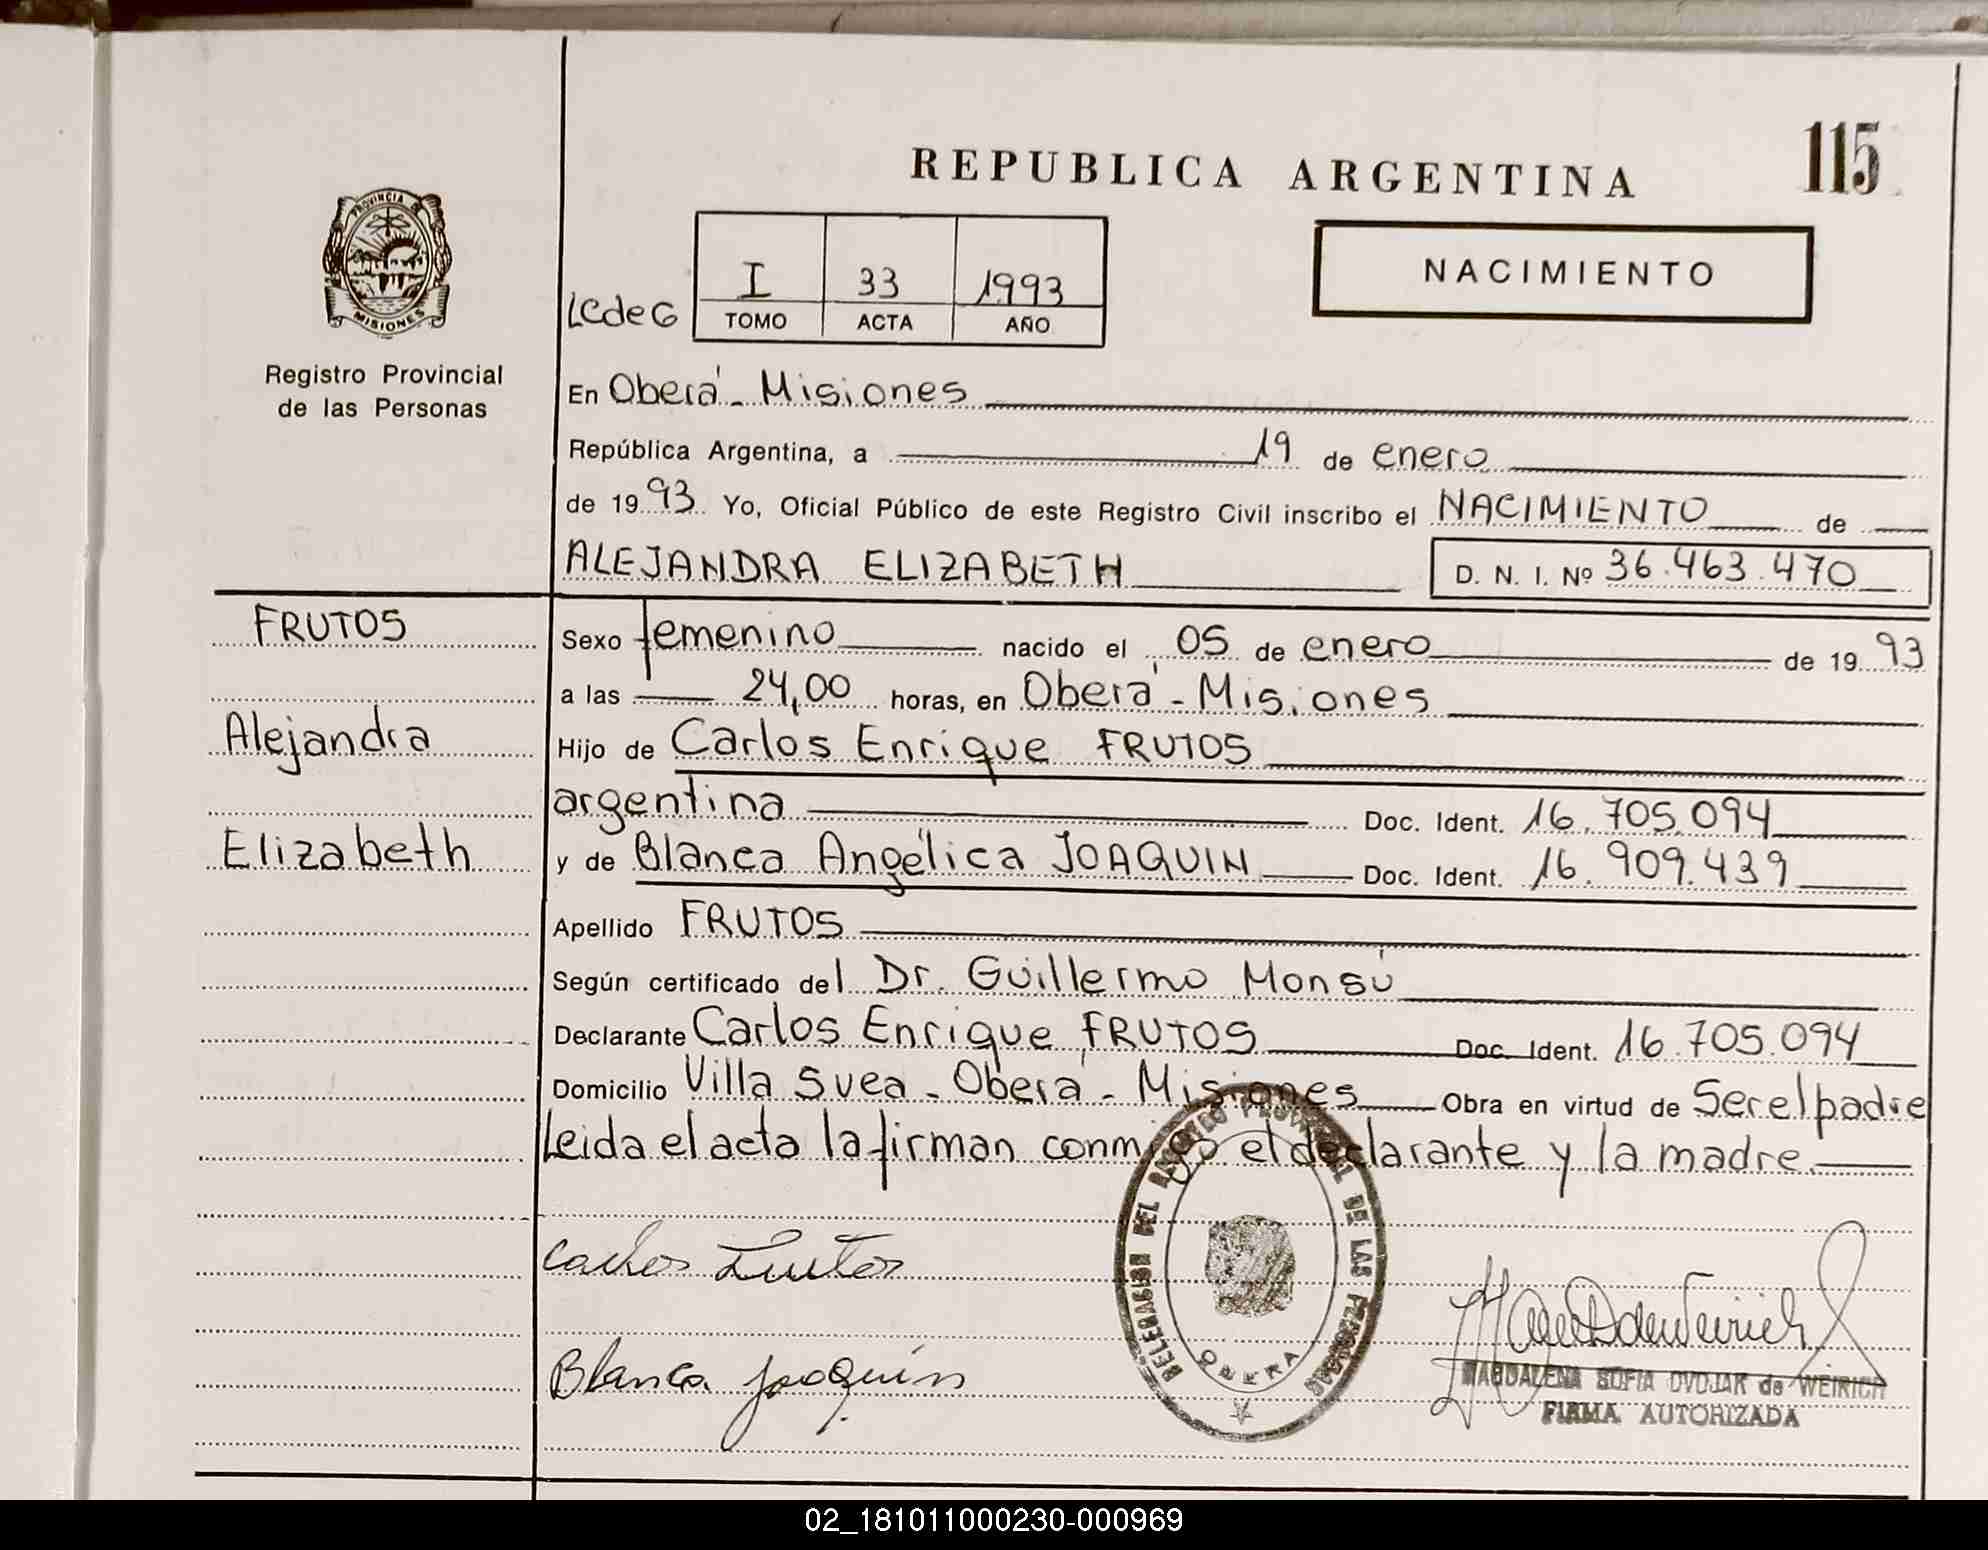 115
REPUBLICA ARGENTINA
PROVINCIA DE
MISIONES
NACIMIENTO
LCdeG
I 33 1993
TOMO ACTA AÑO
Registro Provincial
de las Personas
En Oberá - Misiones
República Argentina, a 19 de enero
de 1993 Yo, Oficial Público de este Registro Civil inscribo el NACIMIENTO de
ALEJANDRA ELIZABETH D. N. I. Nº 36.463.470
FRUTOS
Sexo femenino nacido el 05 de enero de 1993
a las 24,00 horas, en Oberá - Misiones
Alejandra
Hijo de Carlos Enrique FRUTOS
argentina Doc. Ident. 16.705.094
Elizabeth
y de Blanca Angélica JOAQUIN Doc. Ident. 16.909.439
Apellido FRUTOS
Según certificado del Dr. Guillermo Monsú
Declarante Carlos Enrique FRUTOS Doc. Ident. 16.705.094
Domicilio Villa Svea - Oberá - Misiones Obra en virtud de Ser el padre
Leida el acta la firman conmigo el declarante y la madre
DELEGACION DEL REGISTRO PROVINCIAL DE LAS PERSONAS
OBERA
Carlos Frutos
Blanca Joaquín
MAGDALENA SOFIA DVOJAK de WEIRICH
FIRMA AUTORIZADA
02_181011000230-000969